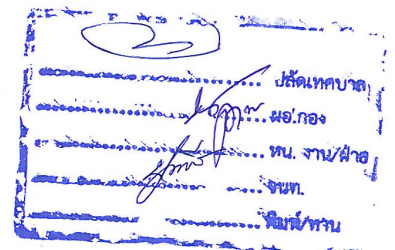 ปลัดเทศบาล
ผอ.กอง
หน. งาน/ฝ่าย
จนท.
พิมพ์/ทาน